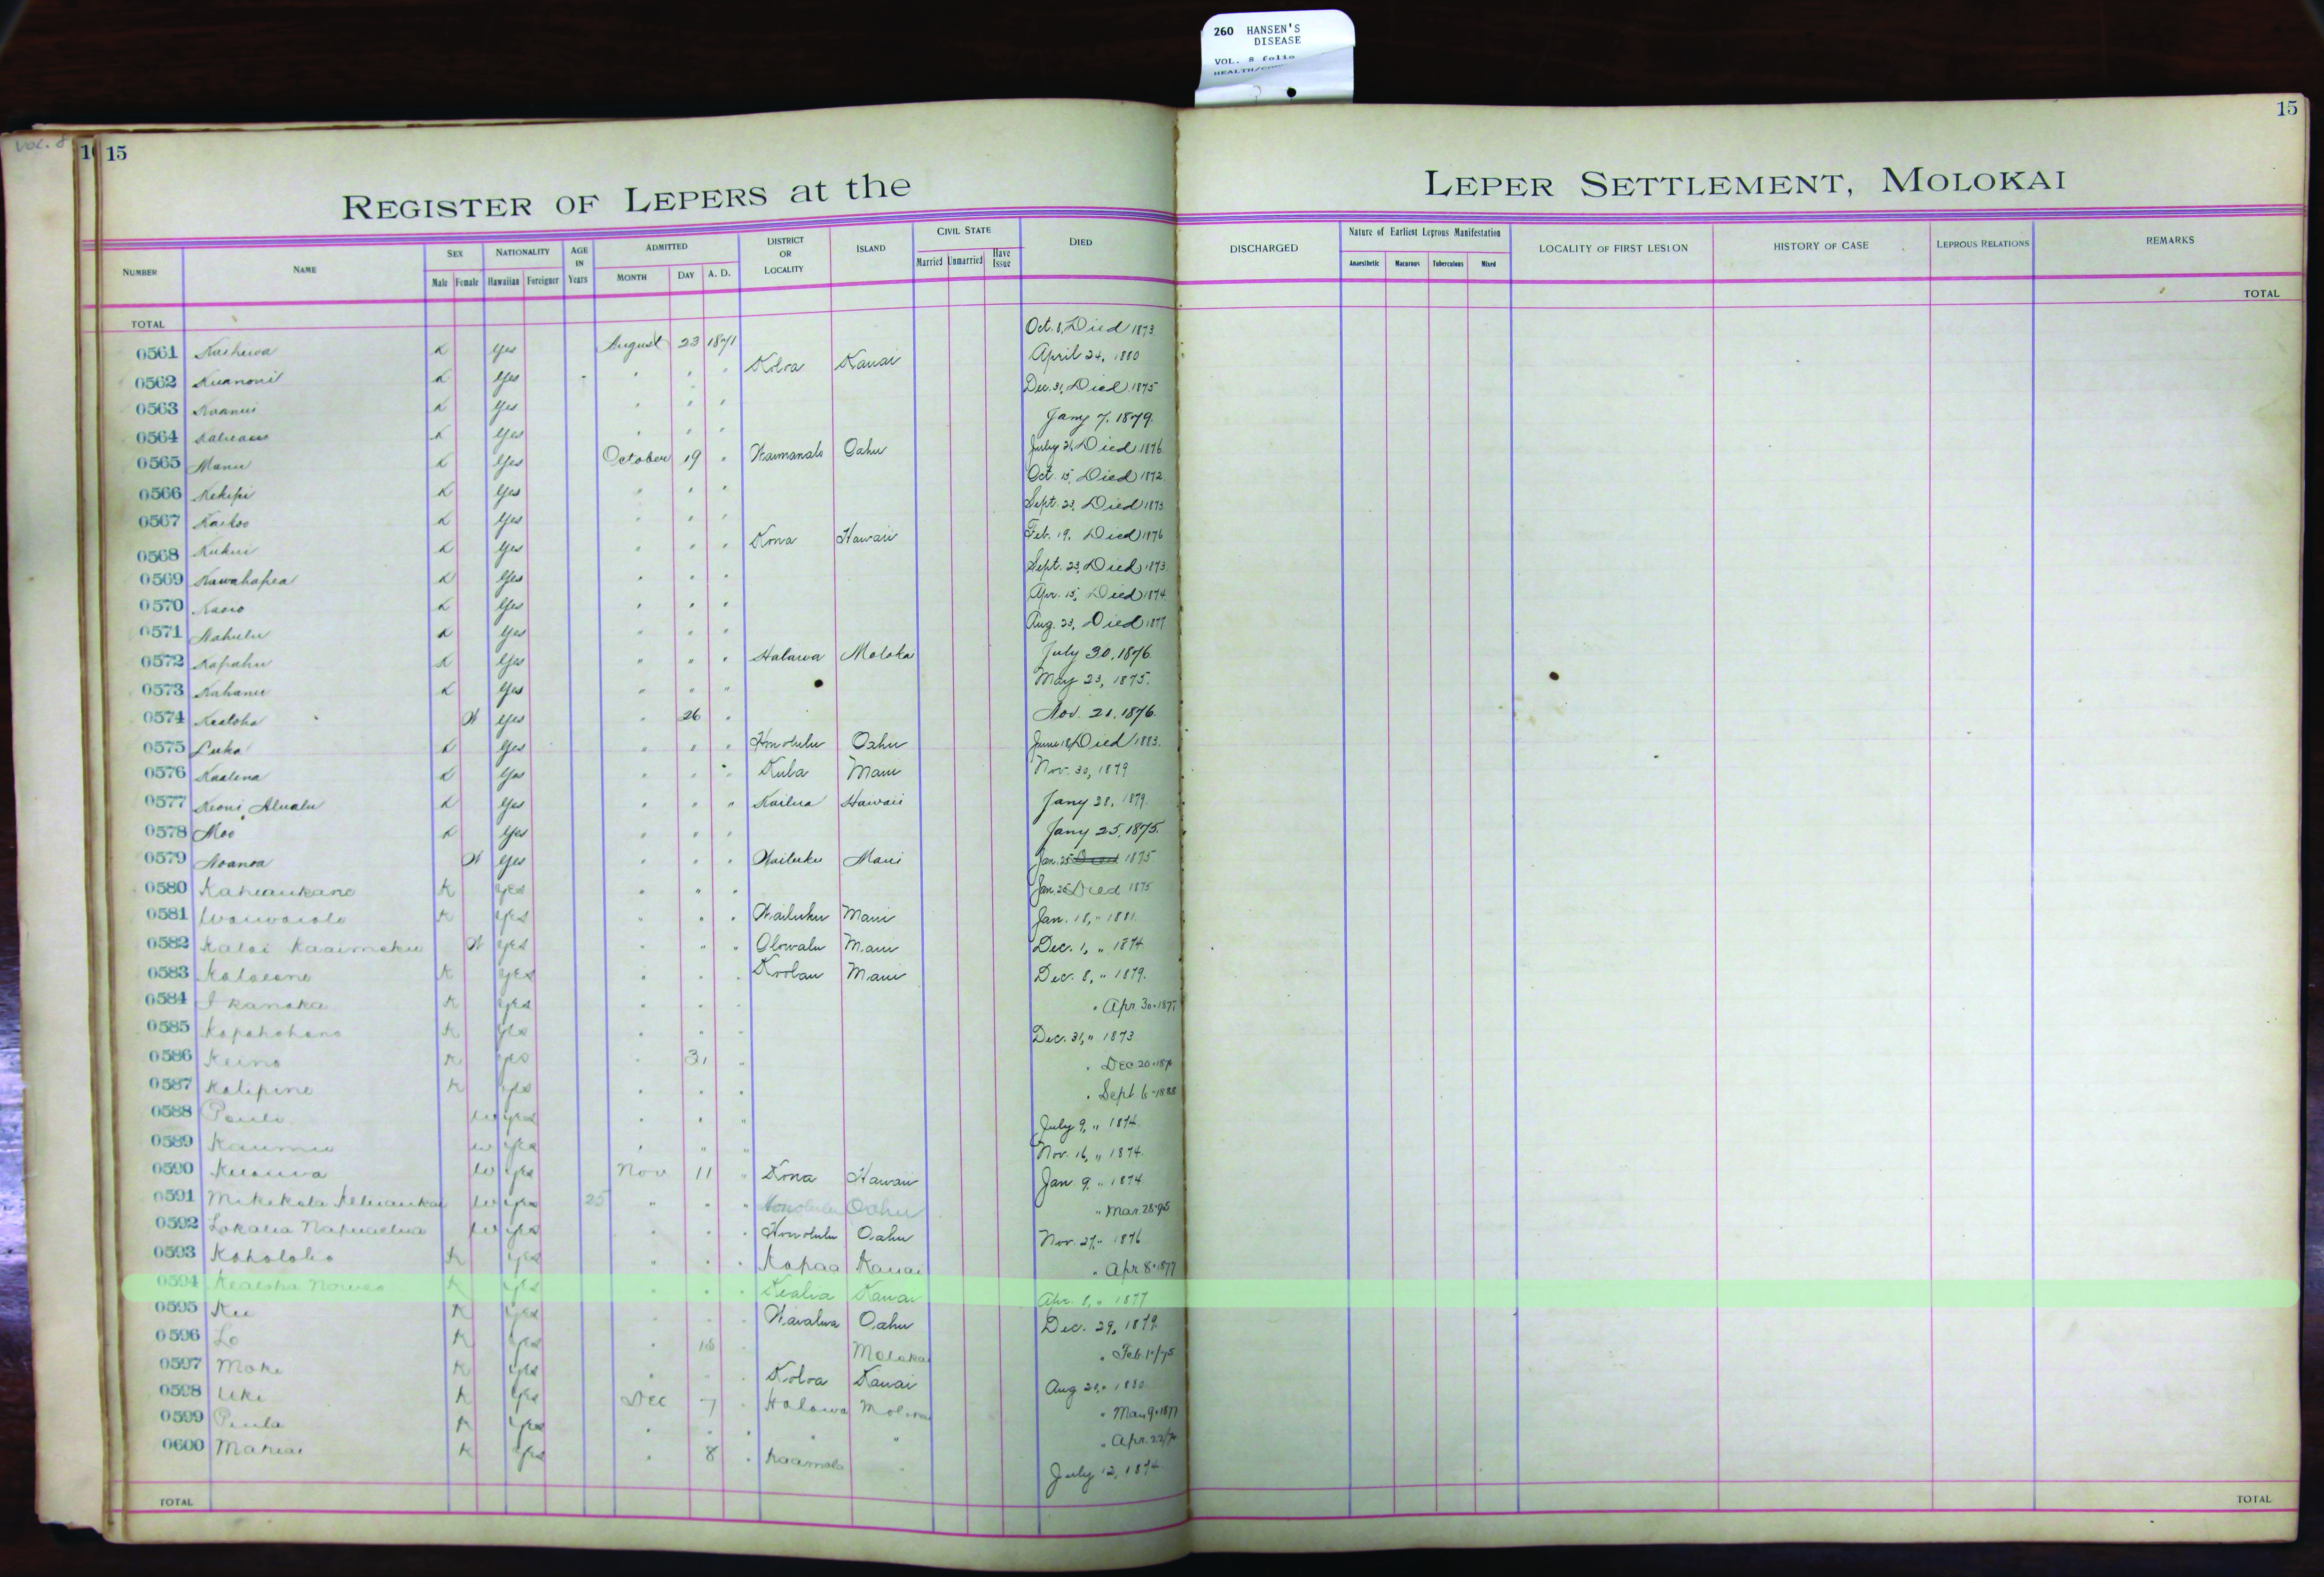 260 HANSEN'S
DISEASE
VOL. 8 folio
VOL. 8
15
15
REGISTER OF LEPERS at the LEPER SETTLEMENT, MOLOKAI
NUMBER NAME SEX Male Female NATIONALITY Hawaiian Foreigner AGE IN Years ADMITTED MONTH DAY A. D. DISTRICT OR LOCALITY ISLAND CIVIL STATE Married Unmarried Have Issue DIED DISCHARGED Nature of Earliest Leprous Manifestation Anaesthetic Macurous Tuberculous Mixed LOCALITY OF FIRST LESION HISTORY OF CASE LEPROUS RELATIONS REMARKS
TOTAL TOTAL
0561 K Yes August 23 1871 Oct. 8, Died 1873
0562 Kuanoni K Yes " " " Koloa Kauai April 24, 1880
0563 K Yes " " " Dec. 31, Died 1875
0564 K Yes " " " Jany 7, 1879
0565 Manu K Yes October 19 " Waimanalo Oahu July 21, Died 1876
0566 Kekipi K Yes " " " Oct. 15, Died 1872
0567 Kaikoo K Yes " " " Sept. 23, Died 1873
0568 Kukui K Yes " " " Kona Hawaii Feb. 19, Died 1876
0569 Kawahapea K Yes " " " Sept. 23, Died 1873
0570 K Yes " " " Apr. 15, Died 1874
0571 Nahulu K Yes " " " Aug. 23, Died 1877
0572 Kapahu K Yes " " " Halawa Moloka July 30, 1876
0573 Kahanu K Yes " " " May 23, 1875.
0574 Kealoha W Yes " 26 " Nov. 21, 1876
0575 Luka K Yes " " " Honolulu Oahu June 18, Died 1883
0576 Kaalena K Yes " " " Kula Maui Nov. 30, 1879
0577 Keoni Alualu K Yes " " " Kailua Hawaii Jany 28, 1879
0578 Moo K Yes " " " Jany 25, 1875.
0579 Noanoa W Yes " " " Wailuku Maui Jan. 25 Died 1875
0580 Kaheaukane K Yes " " " Jan. 25 Died 1875
0581 Waiwaiole K Yes " " " Wailuku Maui Jan. 18, " 1881
0582 Kalai Kaaimoku W Yes " " " Olowalu Maui Dec. 1, " 1874
0583 K Yes " " " Koolau Maui Dec. 8, " 1879.
0584 Ikanaka K Yes " " " " Apr 30 - 1877
0585 K Yes " " " Dec. 31, " 1873
0586 Keino K Yes " 31 " " Dec 20 -
0587 Kalipino K Yes " " " " Sept 6 - 1888
0588 Pauli W Yes " " " July 9, " 1874
0589 Kaumu W Yes " " " Nov. 16, " 1874
0590 W Yes Nov 11 " Kona Hawaii Jan 9, " 1874
0591 W Yes 25 " " " Honolulu Oahu " Mar. 28-95
0592 W Yes " " " Honolulu Oahu Nov. 27, " 1876
0593 Koholoho K Yes " " " Kapaa Kauai " Apr 8 - 1877
0594 Kealoha K Yes " " " Kealia Kauai Apr. 8, " 1877
0595 Ku K Yes " " " Waialua Oahu Dec. 29, 1879
0596 Lo K Yes " 18 " Molokai " Feb. 1"/75
0597 Moke K Yes " " " Koloa Kauai Aug 21, " 1880
0598 Uki K Yes Dec 7 " Halawa Molokai " Mar 9 - 1877
0599 Piula K Yes " " " " " " Apr. 22/
0600 Mahiai K Yes " 8 " Kaamola " July 12, 1874
TOTAL TOTAL